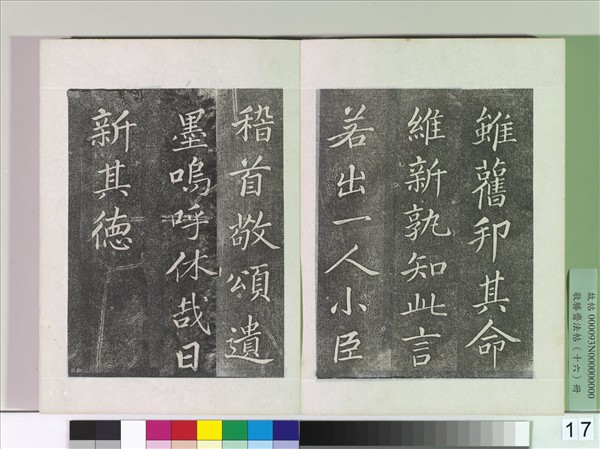 雖舊邦其命
維新孰知此言
若出一人小臣
稽首敬頌遺
墨嗚呼休哉日
新其德
故帖000093N000000000
敬勝齋法帖（十六）冊
17